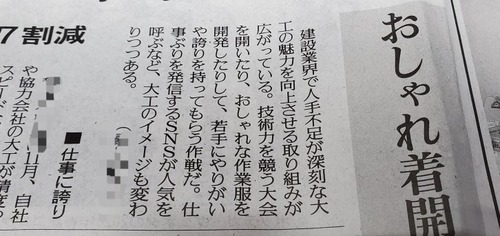 おしゃれ着開
建設業界で人手不足が深刻な大
工の魅力を向上させる取り組みが
広がっている。技術力を競う大会
を開いたり、おしゃれな作業服を
開発したりして、若手にやりがい
や誇りを持ってもらう作戦だ。仕
事ぶりを発信するSNSが人気を
呼ぶなど、大工のイメージも変わ
りつつある。
（
■仕事に誇り
11月、自社
や協力会社の大工が精度
スピード
7割減